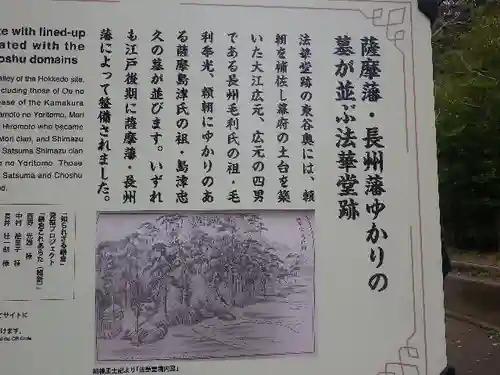 薩摩藩・長州藩ゆかりの
墓が並ぶ法華堂跡
法華堂跡の東谷奥には、頼
朝を補佐し幕府の土台を築
いた大江広元、広元の四男
である長州毛利氏の祖・毛
利季光、頼朝にゆかりのあ
る薩摩島津氏の祖・島津忠
久の墓が並びます。いずれ
も江戸後期に薩摩藩・長州
藩によって整備されました。
te with lined-up
ated with the
oshu domains
alley of the Hokkedo site,
cluding those of Oe no
ase of the Kamakura
amoto no Yoritomo, Mori
Hiromoto who became
Mori clan, and Shimazu
Satsuma Shimazu clan
e no Yoritomo. Those
Satsuma and Choshu
d.
「知られざる鎌倉」
発掘プロジェクト